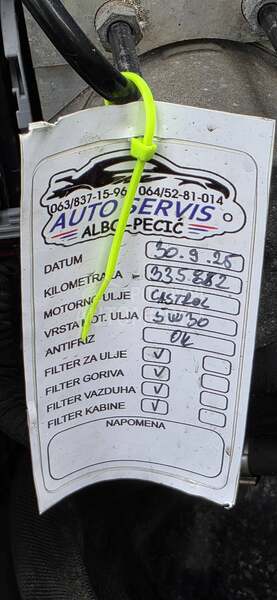 063/837-15-96 064/52-81-014
AUTO SERVIS
ALBO-PECIĆ
DATUM 30.9.25
KILOMETRAŽA 335882
MOTORNO ULJE CASTROL
VRSTA MOT. ULJA 5W30
ANTIFRIZ OK
FILTER ZA ULJE ✓
FILTER GORIVA ✓
FILTER VAZDUHA ✓
FILTER KABINE ✓
NAPOMENA